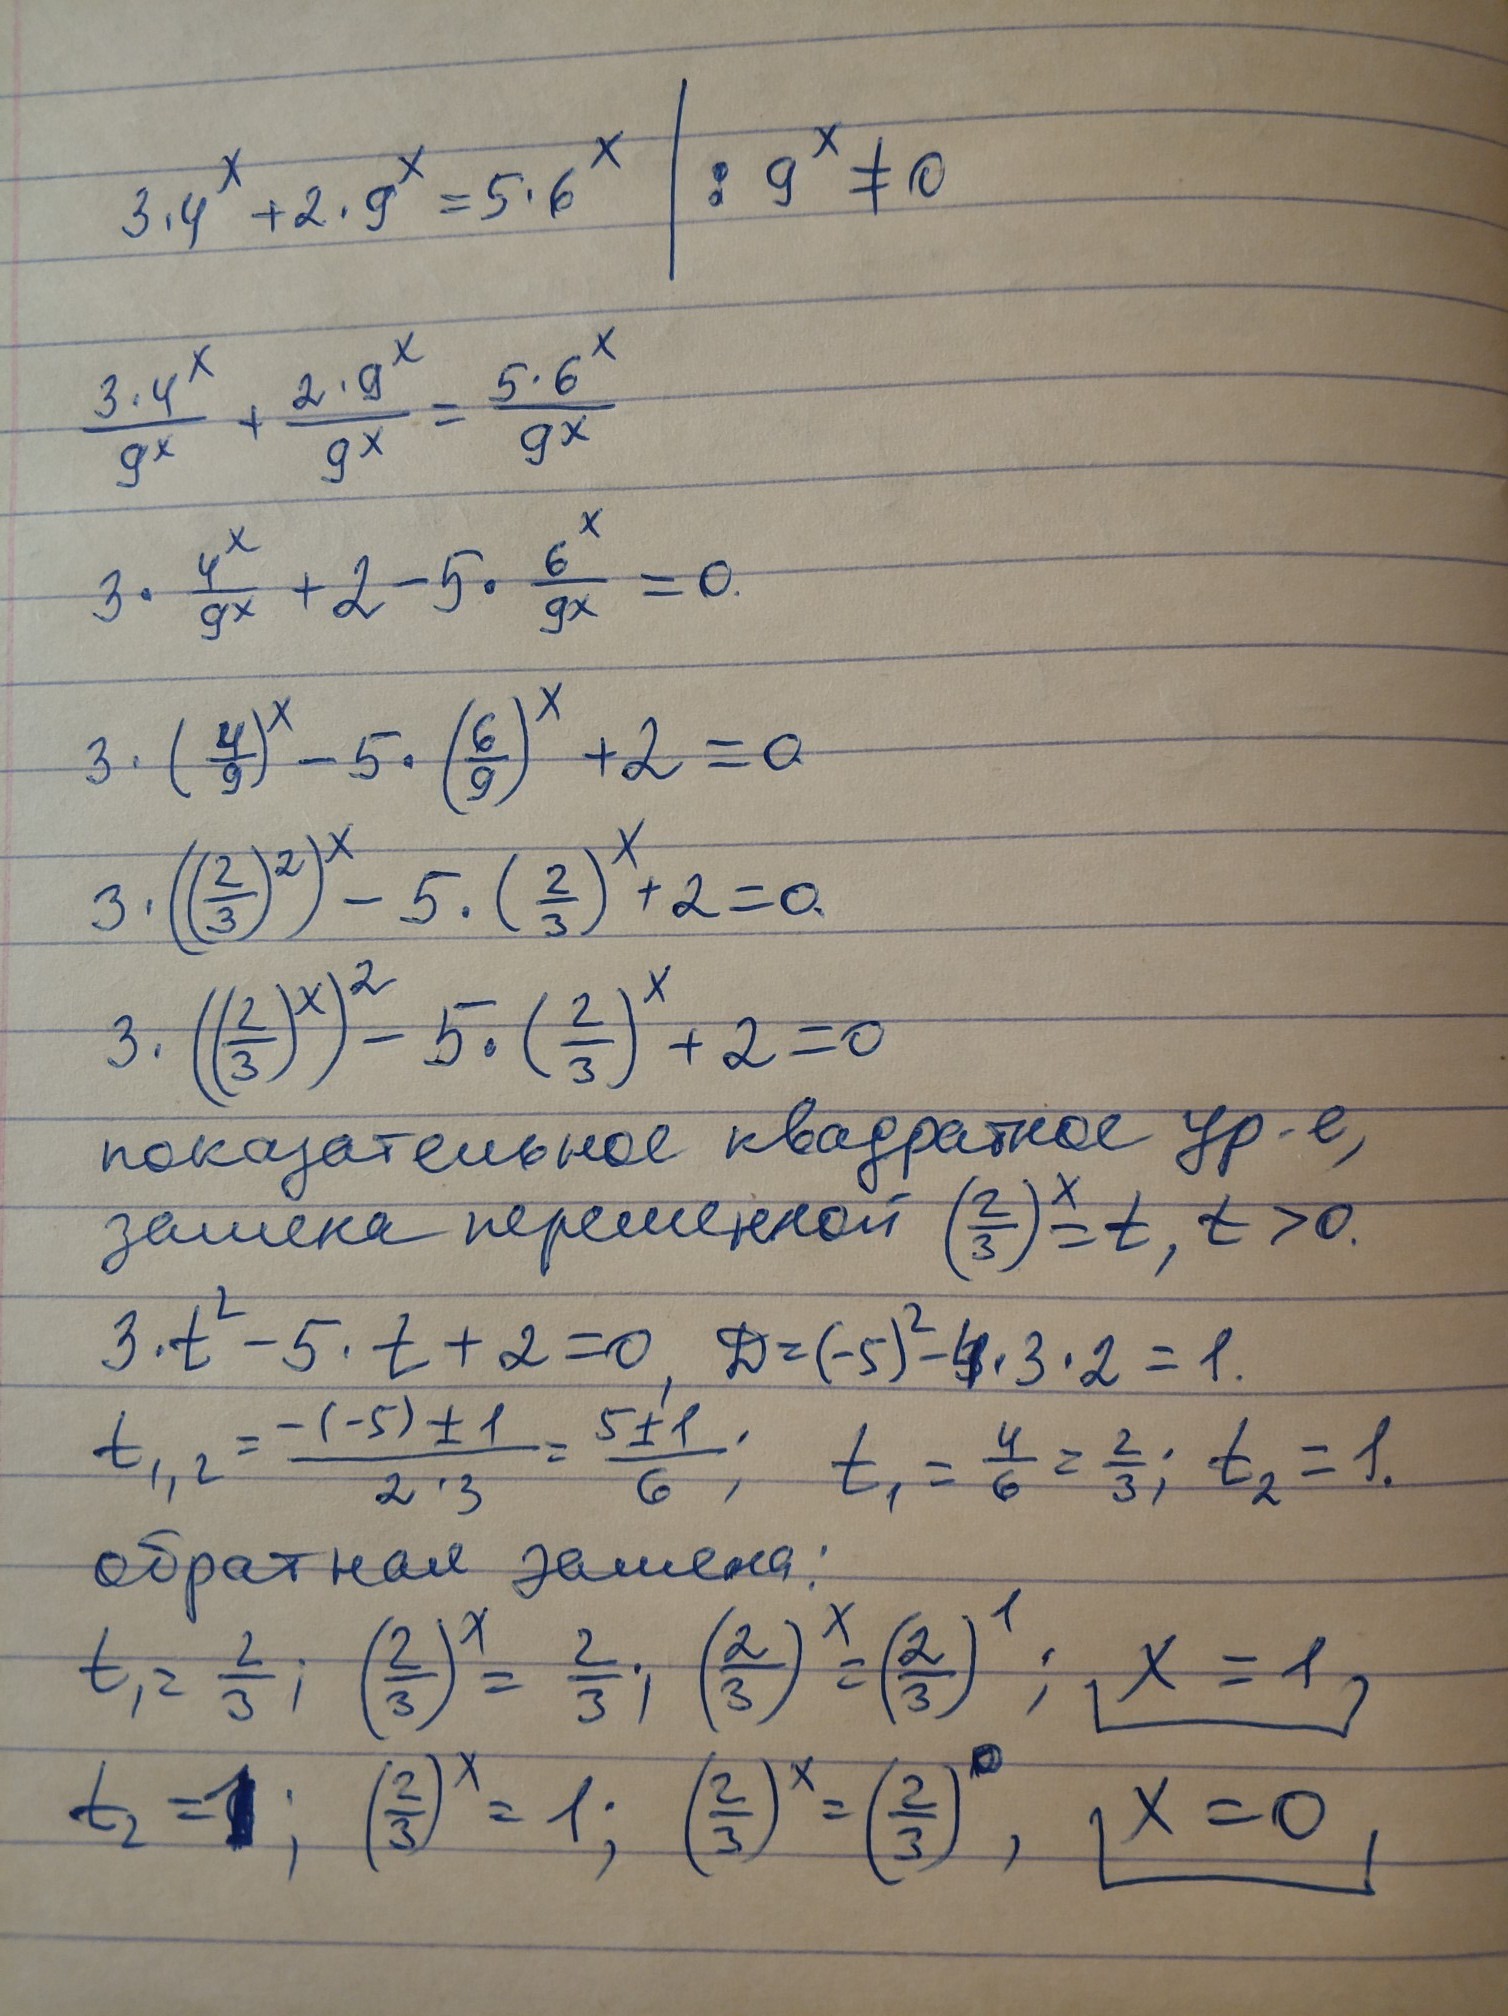 3·4^x + 2·9^x = 5·6^x | : 9^x ≠ 0
(3·4^x)/(9^x) + (2·9^x)/(9^x) = (5·6^x)/(9^x)
3·(4^x)/(9^x) + 2 − 5·(6^x)/(9^x) = 0.
3·(4/9)^x − 5·(6/9)^x + 2 = 0
3·((2/3)^2)^x − 5·(2/3)^x + 2 = 0.
3·((2/3)^x)^2 − 5·(2/3)^x + 2 = 0
показательное квадратное ур-е,
замена переменной (2/3)^x = t, t > 0.
3·t^2 − 5·t + 2 = 0, D = (−5)^2 − 4·3·2 = 1.
t_1,2 = (−(−5) ± 1)/(2·3) = (5 ± 1)/6; t_1 = 4/6 = 2/3; t_2 = 1.
обратная замена:
t_1 = 2/3; (2/3)^x = 2/3; (2/3)^x = (2/3)^1; x = 1,
t_2 = 1; (2/3)^x = 1; (2/3)^x = (2/3)^0, x = 0